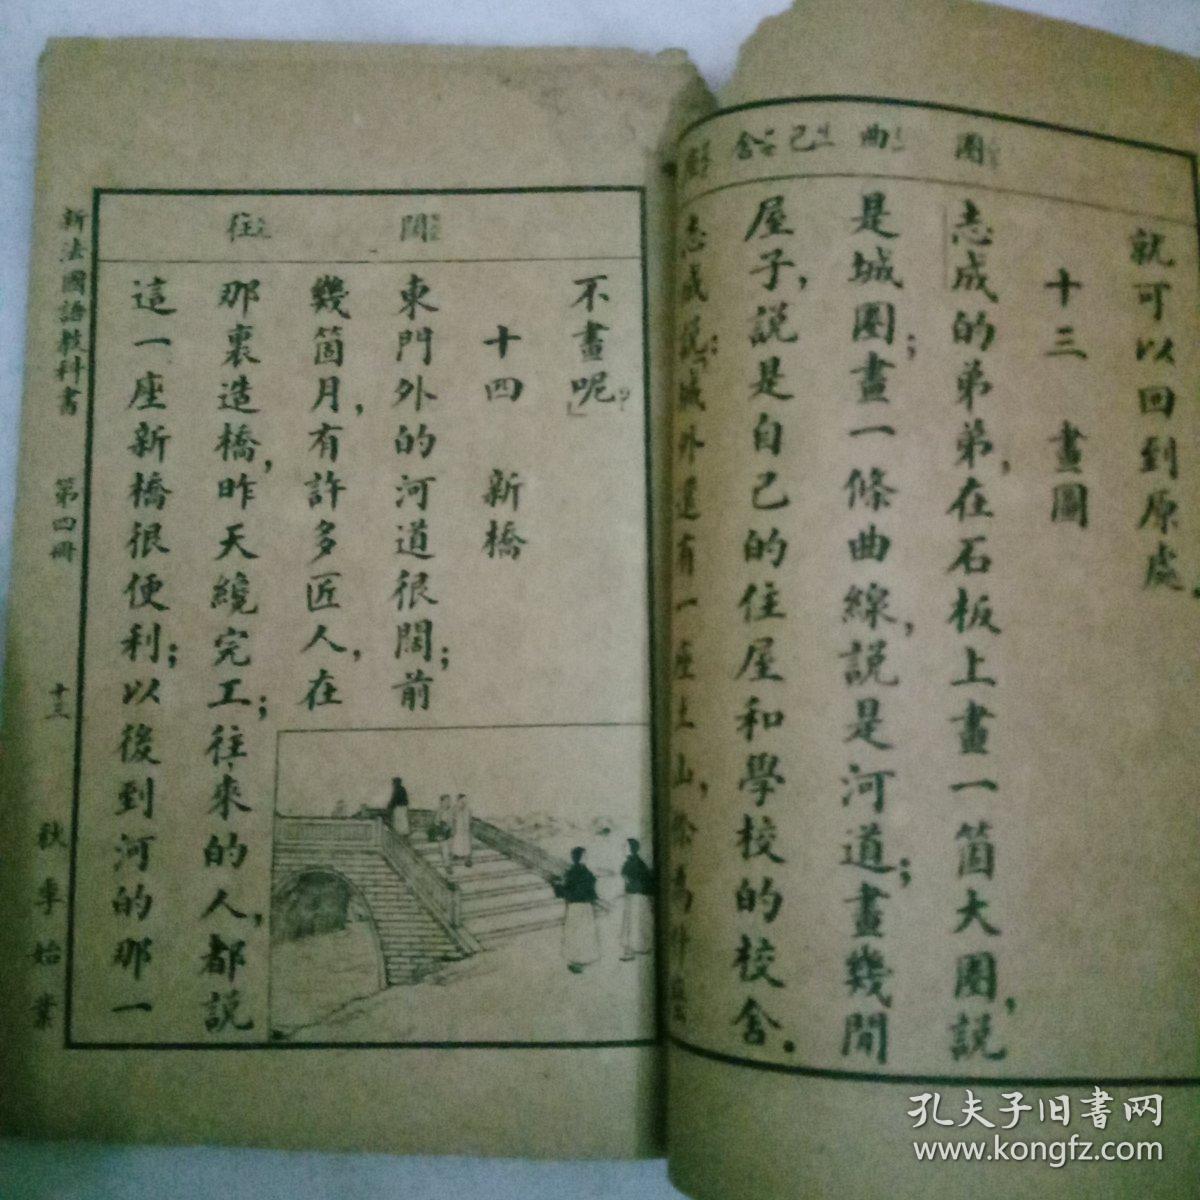 圈 曲 己 舍
就可以回到原處。
十三 畫圖
志成的弟弟,在石板上畫一箇大圈,説
是城圈;畫一條曲線,説是河道;畫幾間
屋子,説是自己的住屋和學校的校舍。
志成説:「城外還有一座土山,你爲什麽
不畫呢?」
闊 往
十四 新橋
東門外的河道很闊;前
幾箇月,有許多匠人,在
那裏造橋,昨天纔完工;往來的人,都説
這一座新橋很便利;以後到河的那一
新法國語教科書 第四冊 十三 秋季始業
孔夫子旧书网
www.kongfz.com